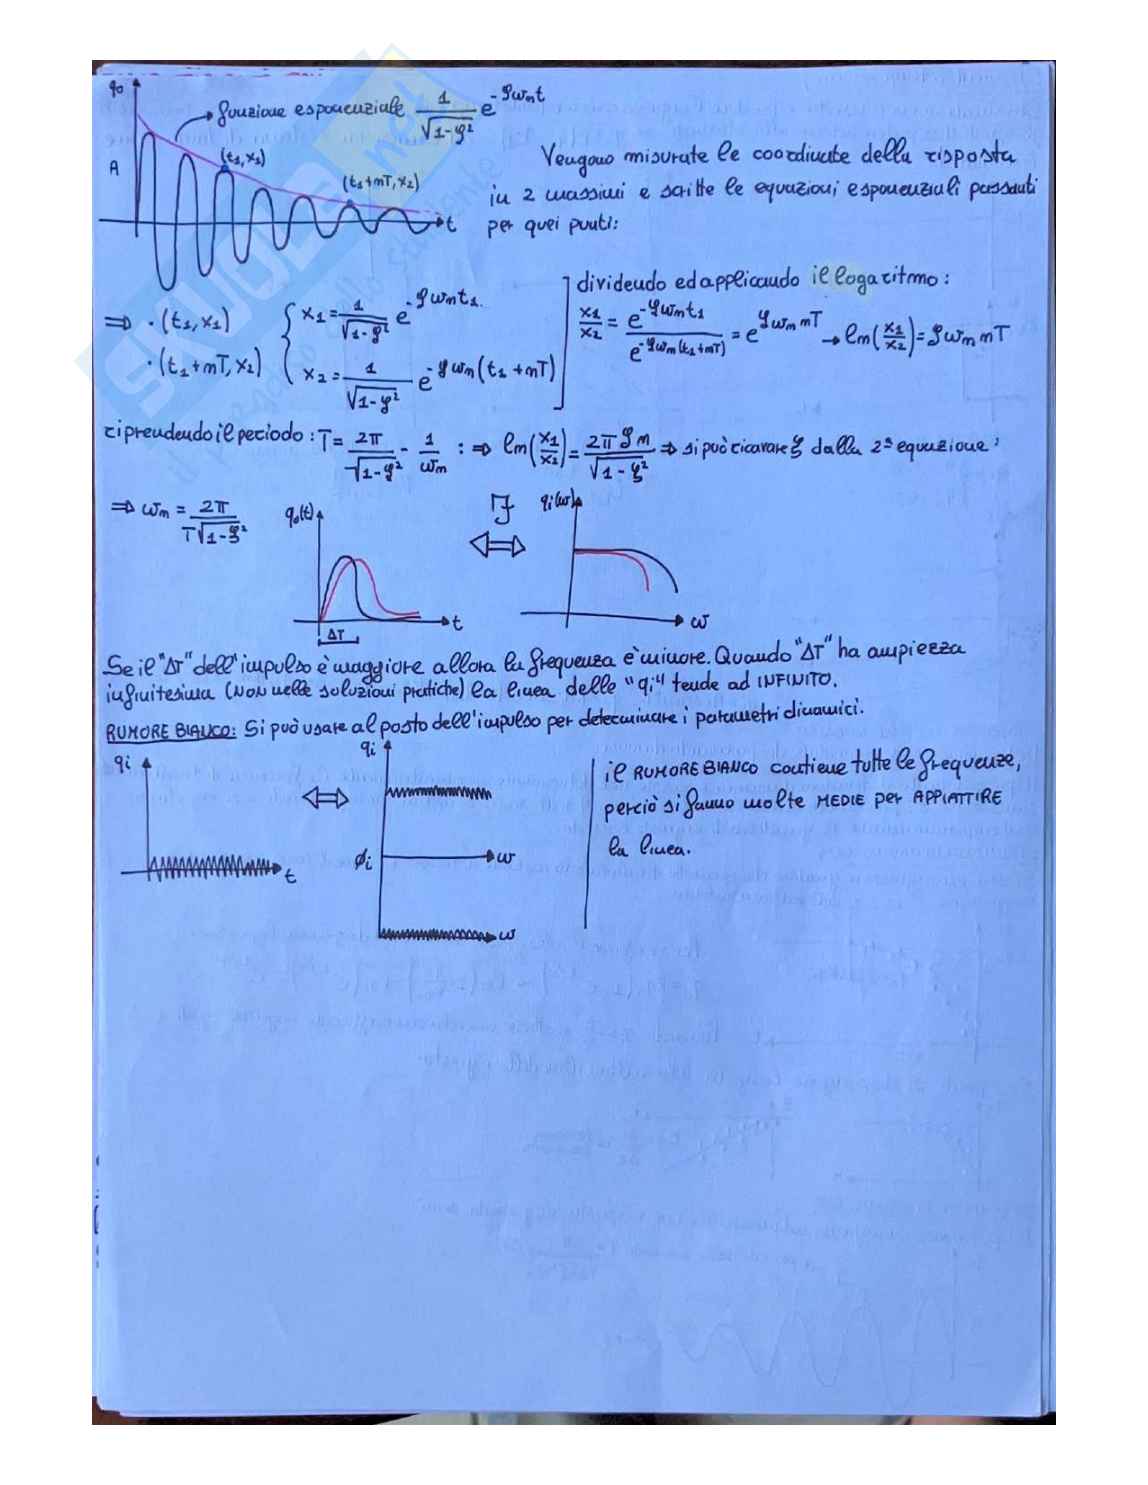 q₀
funzione esponenziale 1/√1-ξ² e^-ξωnt
A
(t₁,x₁)
(t₁+mT,x₂)
t
Vengono misurate le coordinate della risposta
in 2 massimi e scritte le equazioni esponenziali passanti
per quei punti:
⇒ · (t₁,x₁)
· (t₁+mT,x₂)
{ x₁ = 1/√1-ξ² e^-ξωnt₁
x₂ = 1/√1-ξ² e^-ξωn(t₁+mT)
dividendo ed applicando il logaritmo:
x₁/x₂ = e^-ξωnt₁ / e^-ξωn(t₁+mT) = e^ξωn mT → ln(x₁/x₂) = ξωn mT
riprendendo il periodo: T = 2π/√1-ξ² - 1/ωn : ⇒ ln(x₁/x₂) = 2πξm/√1-ξ² ⇒ si può ricavare ξ dalla 2ª equazione:
⇒ ωn = 2π/T√1-ξ²
q₀(t)
t
ΔT
F
⇔
qi(ω)
ω
Se il "ΔT" dell'impulso è maggiore allora la frequenza è minore. Quando "ΔT" ha ampiezza
infinitesima (NON nelle soluzioni pratiche) la linea delle "qi" tende ad INFINITO.
RUMORE BIANCO: Si può usare al posto dell'impulso per determinare i parametri dinamici.
qi
t
⇔
qi
ϕi
ω
ω
il RUMORE BIANCO contiene tutte le frequenze,
perciò si fanno molte MEDIE per APPIATTIRE
la linea.
SKUOLA.net